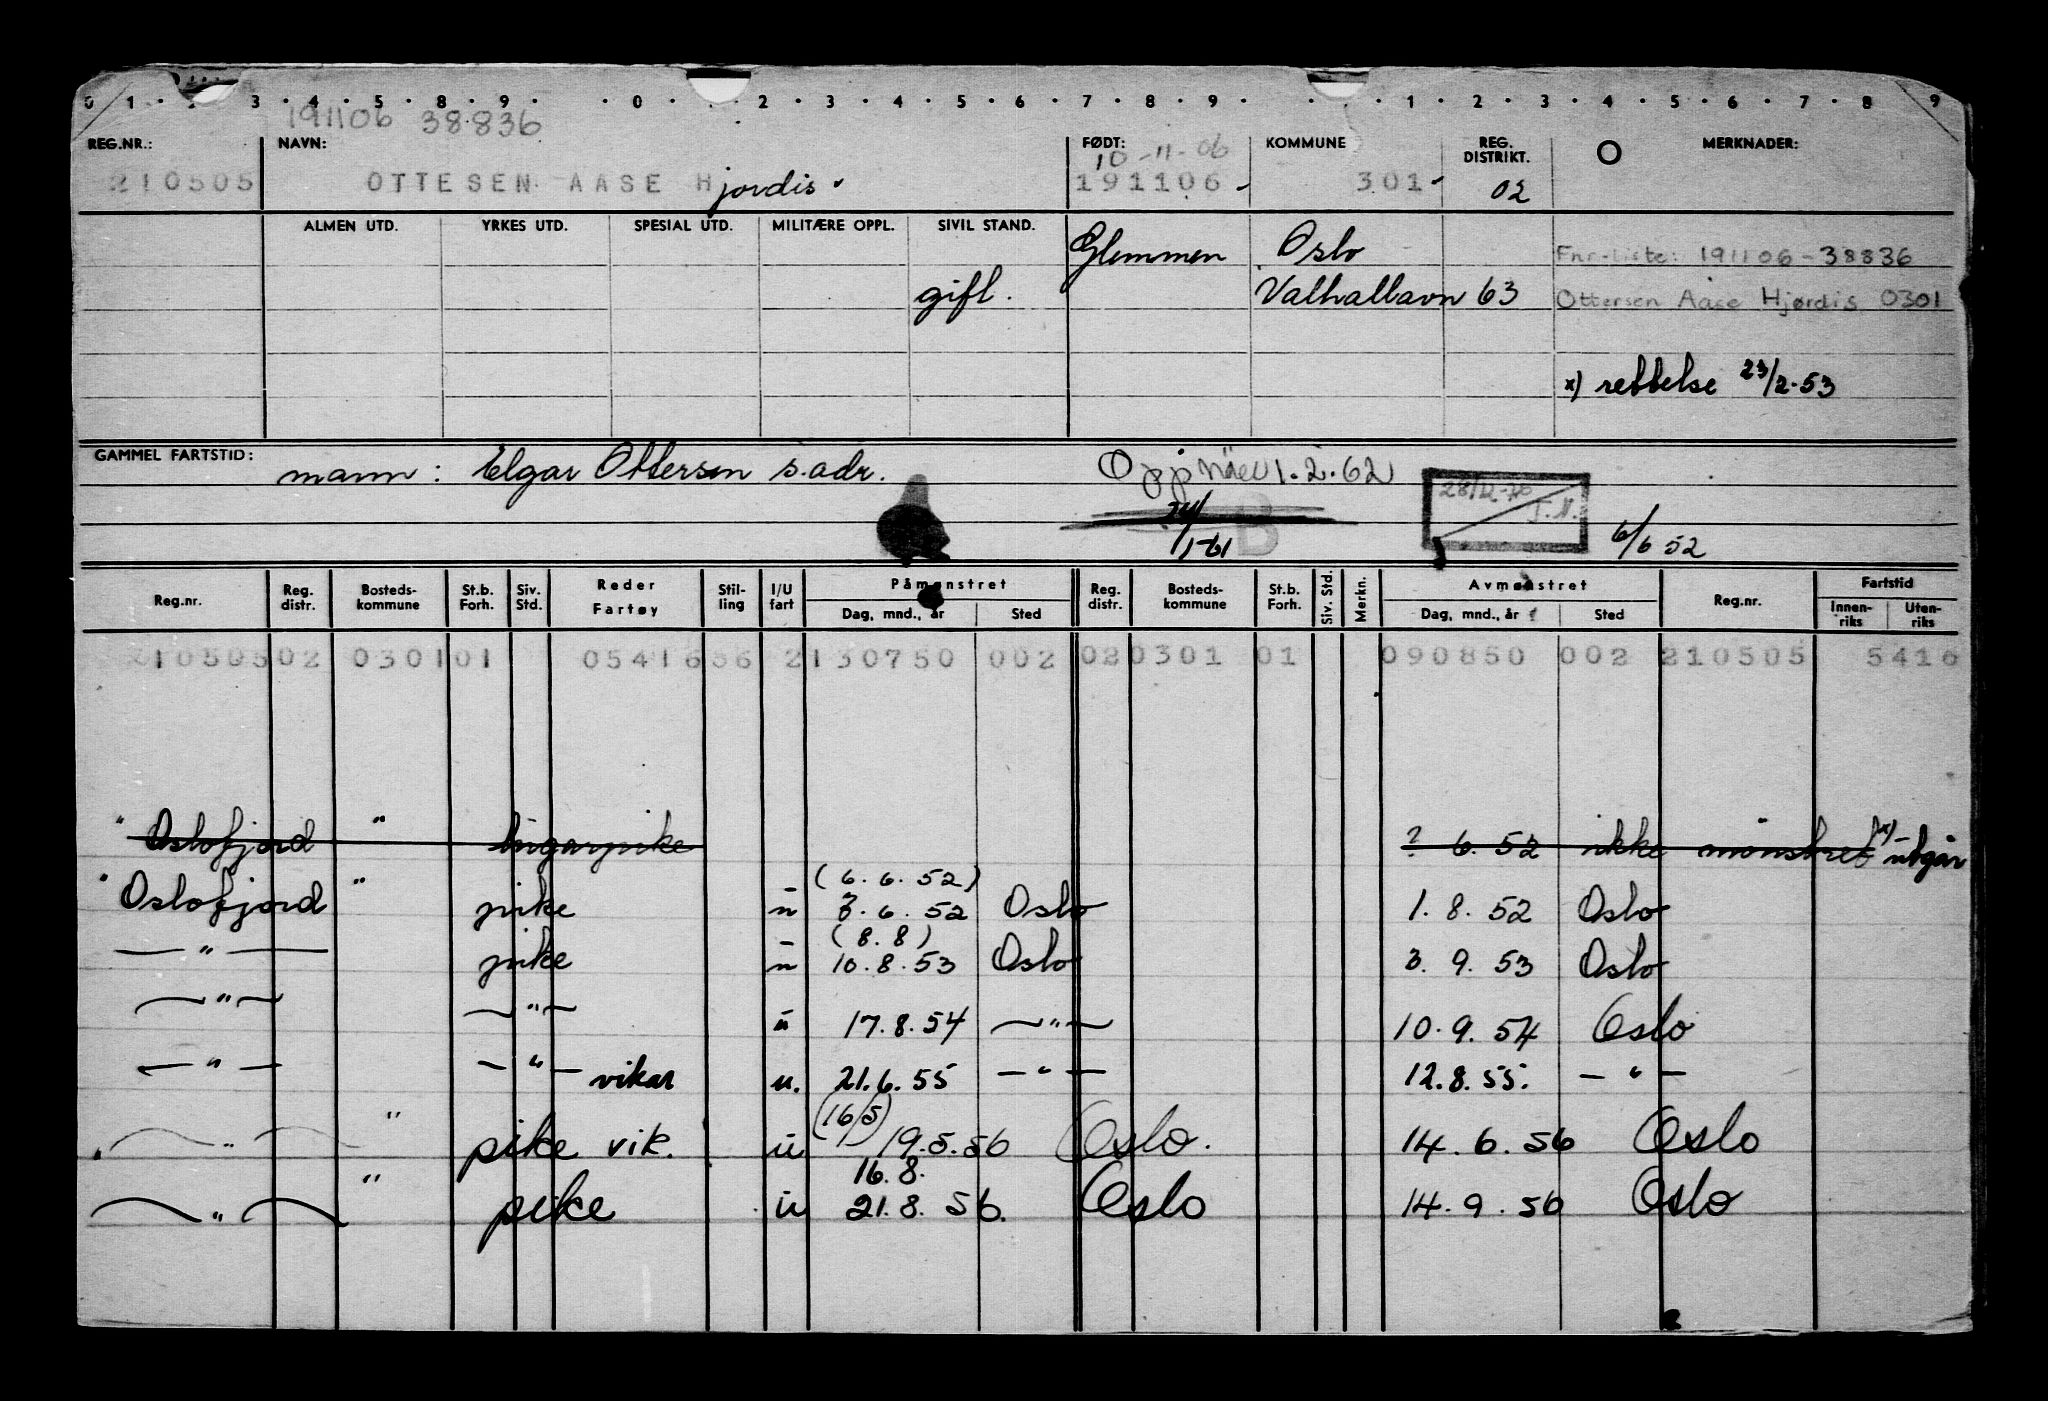 0 1 · 2 3 · 4 · 5 · 8 · 9 · · 0 · 2 · 3 · 4 · 5 · 6 · 7 · 8 · 9 · · · · 1 · 2 · 3 · 4 · 5 · 6 · 7 · 8 9
191106 38836
REG.NR.: NAVN: FØDT: KOMMUNE REG. DISTRIKT. O MERKNADER:
10-11-06
210505 OTTESEN AASE Hjordis 191106- 301- 02
ALMEN UTD. YRKES UTD. SPESIAL UTD. MILITÆRE OPPL. SIVIL STAND.
Glemmen Oslo Fnr-liste: 191106-38836
gift. Valhallavn 63 Ottersen Aase Hjørdis 0301
x) rettelse 23/2-53
GAMMEL FARTSTID: mann: Elgar Ottersen s.adr. 1.2.62
28/12-70 T.N.
B
/1-61 6/6 52
Reg.nr. Reg. distr. Bosteds- kommune St.b. Forh. Siv. Std. Reder Fartøy Stil- ling I/U fart Påmønstret Dag, mnd., år Sted Reg. distr. Bosteds- kommune St.b. Forh. Siv. Std. Merkn. Avmønstret Dag, mnd., år Sted Reg.nr. Fartstid Innen- riks Uten- riks
210505 02 0301 01 05416 56 2 130750 002 02 0301 01 090850 002 210505 5416
" Oslofjord " lugarpike ? 6. 52 ikke mønstret x) utgår
(6. 6. 52)
" Oslofjord " pike u 6. 52 Oslo 1. 8. 52 Oslo
(8. 8)
— " — pike u 10. 8. 53 Oslo 3. 9. 53 Oslo
— " — — " — u 17. 8. 54 — " — 10. 9. 54 Oslo
— " — — " — vikar u. 21. 6. 55 — " — 12. 8. 55. — " —
(16/5)
— " — " pike vik. u 19. 5. 56 Oslo. 14. 6. 56 Oslo
16. 8.
— " — " pike u 21. 8. 56. Oslo 14. 9. 56 Oslo